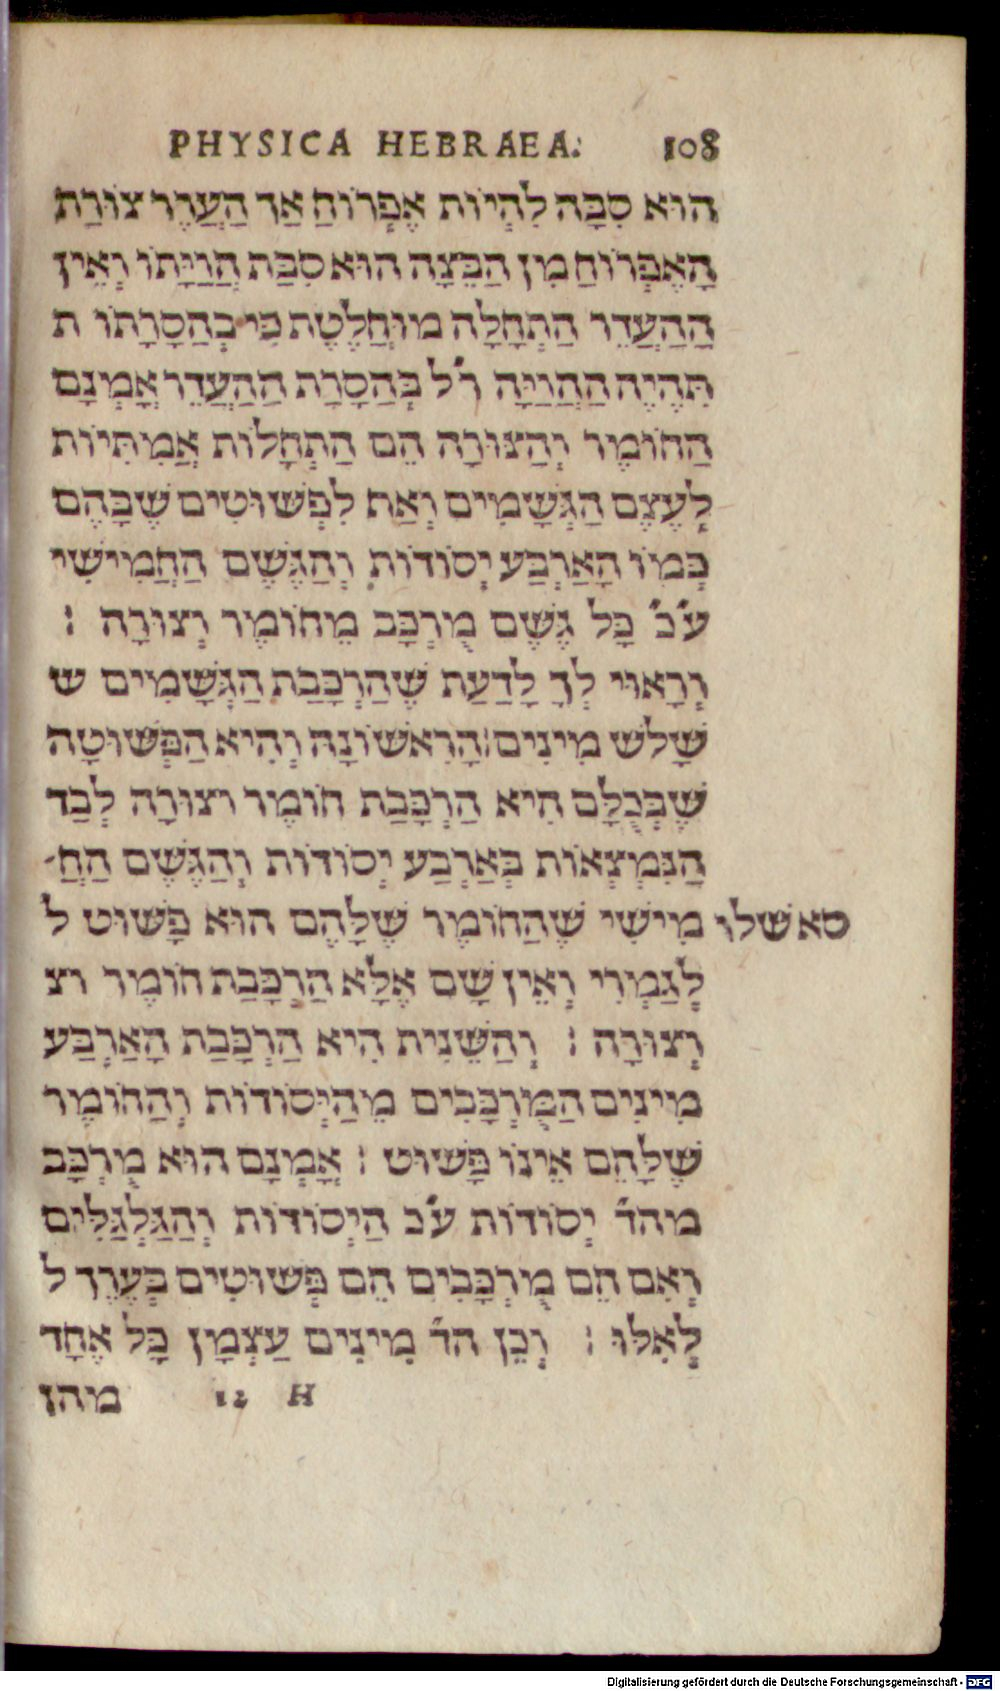 PHYSICA HEBRAEA. 108
הוּא סִבָּה לִהְיוֹת אֶפְרוֹחַ אַךְ הַעֲדֶר צוּרַת
הָאֶפְרוֹחַ מִן הַבֵּצָה הוּא סִבַּת הֲוַיָּתוֹ וְאֵין
הַהַעֲדֵר הַתְחָלָה מוּחְלֶטֶת כִּי בְהַסָרָתוֹ ת
תִּהְיֶה הַהֲוַיָּה ר״ל בְּהַסָרַת הַהַעֲדֵר אָמְנָם
הַחוֹמֶר וְהַצּוּרָה הֵם הַתְחָלוֹת אֲמִתִּיוֹת
לְעֶצֶם הַגְּשָׁמִים וְאַת לִפְשׁוּטִים שֶׁבָּהֶם
כְּמוֹ הָאַרְבַּע יְסוֹדוֹת וְהַגֶּשֶׁם הַחֲמִישִׁי
ע״כ כָּל גֶּשֶׁם מֻרְכָּב מֵחוֹמֶר וְצוּרָה :
וְרָאוּי לְךָ לָדַעַת שֶׁהַרְכָּבַת הַגְּשָׁמִים ש
שָׁלֹשׁ מִינִים:הָרִאשׁוֹנָה וְהִיא הַפְּשׁוּטָה
שֶׁבְּכֻלָּם הִיא הַרְכָּבַת חוֹמֶר וצוּרָה לְבַד
הַנִּמְצָאוֹת בְּאַרְבַּע יְסוֹדוֹת וְהַגֶּשֶׁם הַחֲ-
סא שלו מִישִׁי שֶׁהַחוֹמֶר שֶׁלָּהֶם הוּא פָּשׁוּט ל
לְגַמְרֵי וְאֵין שָׁם אֶלָּא הַרְכָּבַת חוֹמֶר וצ
וְצוּרָה : וְהַשֵּׁנִית הִיא הַרְכָּבַת הָאַרְבַּע
מִינִים הַמֻּרְכָּבִים מֵהַיְסוֹדוֹת וְהַחוֹמֶר
שֶׁלָּהֵם אֵינוֹ פָּשׁוּט : אָמְנָם הוּא מֻרְכָּב
מהד׳ יְסוֹדוֹת ע״כ הַיְסוֹדוֹת וְהַגַּלְגַּלִּים
וְאִם הֵם מֻרְכָּבִים הֵם פְּשׁוּטִים בְּעֶרֶךְ ל
לְאִלּוּ : וְכֵן הד׳ מִינִים עַצְמָן כָּל אֶחָד
H 12 מהן
Digitalisierung gefördert durch die Deutsche Forschungsgemeinschaft - DFG